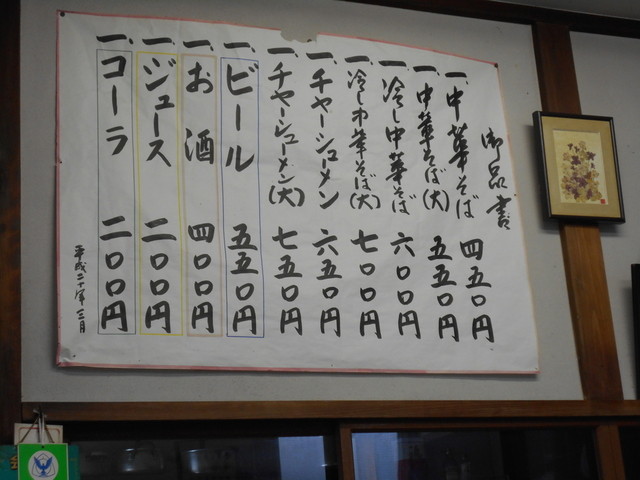 御品書
一、中華そば 四五〇円
一、中華そば(大) 五五〇円
一、冷し中華そば 六〇〇円
一、冷し中華そば(大) 七〇〇円
一、チャーシューメン 六五〇円
一、チャーシューメン(大) 七五〇円
一、ビール 五五〇円
一、お酒 四〇〇円
一、ジュース 二〇〇円
一、コーラ 二〇〇円